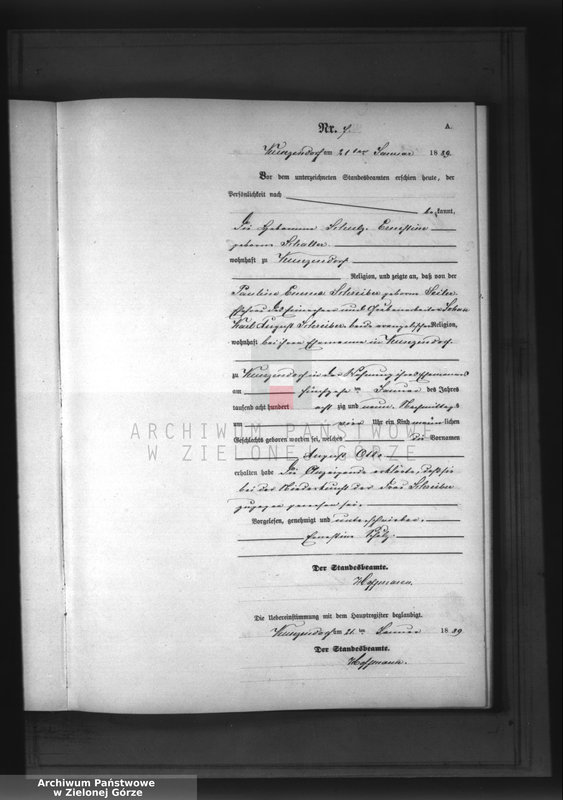 Nr. 7.
A.
Kunzendorf am 21ten Januar 1889.
Vor dem unterzeichneten Standesbeamten erschien heute, der
Persönlichkeit nach
bekannt,
die Hebamme Schulz, Ernestine
geborne Schaller
wohnhaft zu Kunzendorf
Religion, und zeigte an, daß von der
Pauline Emma Schreiber geborne Seiler
Ehefrau des und Grubenarbeiters Johann
Karl August Schreiber, beide evangelischer Religion,
wohnhaft bei ihrem Ehemanne in Kunzendorf
zu Kunzendorf in der Wohnung ihres Ehemannes
am fünfzehnten Januar des Jahres
tausend acht hundert acht zig und neun Nachmittags
um vier Uhr ein Kind männlichen
Geschlechts geboren worden sei, welches die Vornamen
August Otto
erhalten habe Die Anzeigende erklärte, daß sie
bei der Niederkunft der Frau Schreiber
zugegen gewesen sei.
Vorgelesen, genehmigt und unterschrieben.
Ernestine Schulz.
Der Standesbeamte.
Hoffmann.
Die Uebereinstimmung mit dem Hauptregister beglaubigt.
Kunzendorf am 21ten Januar 1889
Der Standesbeamte.
Hoffmann.
ARCHIWUM PAŃSTWOWE
W ZIELONEJ GÓRZE
Archiwum Państwowe
w Zielonej Górze